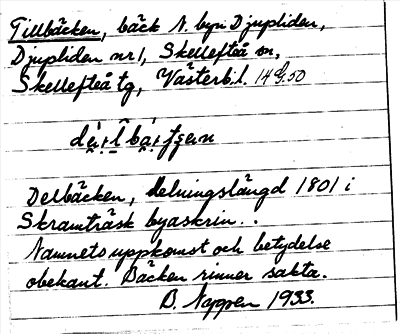 Tillbäcken, bäck N. byn Djupliden,
Djupliden nr 1, Skellefteå sn,
Skellefteå tg, Västerb. l. 14 G. 50
Delbäcken, delningslängd 1801 i
Skramträsk byaskrin..
Namnets uppkomst och betydelse
obekant. Bäcken rinner sakta.
1933.